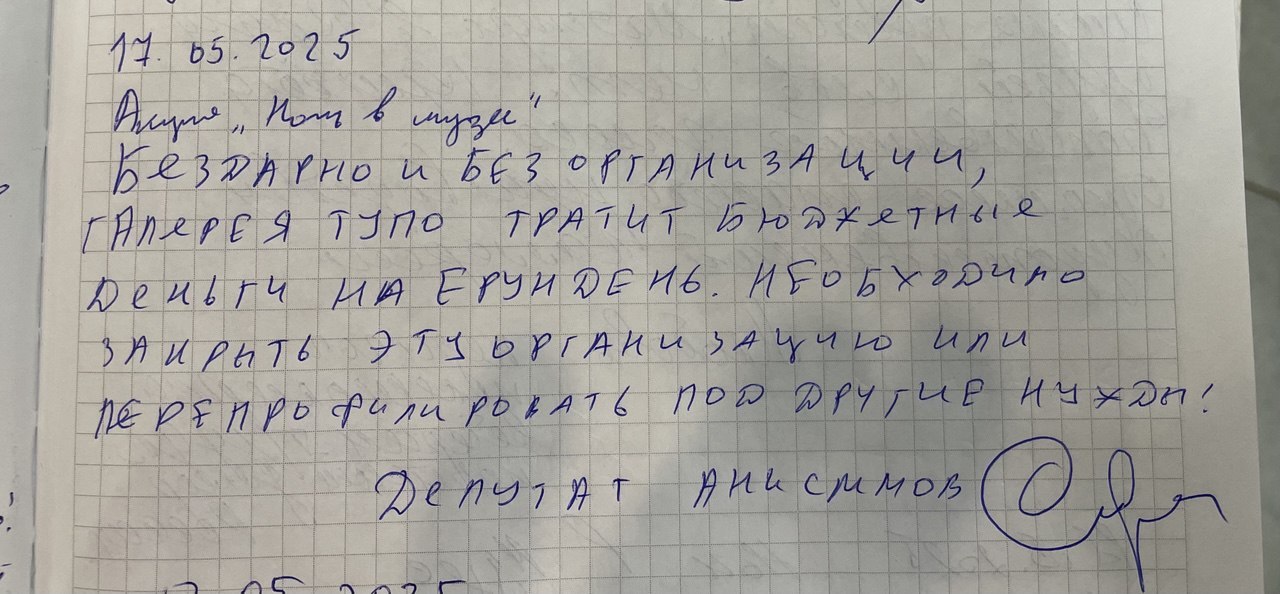 17. 05. 2025
Акция „Ночь в музее"
БеЗДАРНО и БЕЗ ОРГАНИЗАЦИИ,
ГАЛеРЕЯ ТУПО ТРАТИТ БЮДЖеТНЫе
ДеНЬГИ НА ЕРУНДЕНЬ. НЕОБХОДИМО
ЗАКРЫТЬ ЭТУ ОРГАНИЗАЦИЮ ИЛИ
ПЕРЕПРОФИЛИРОВАТЬ ПОД ДРУГИЕ НУЖДЫ!
ДеПУТАТ АНИСИМОВ
05 2025